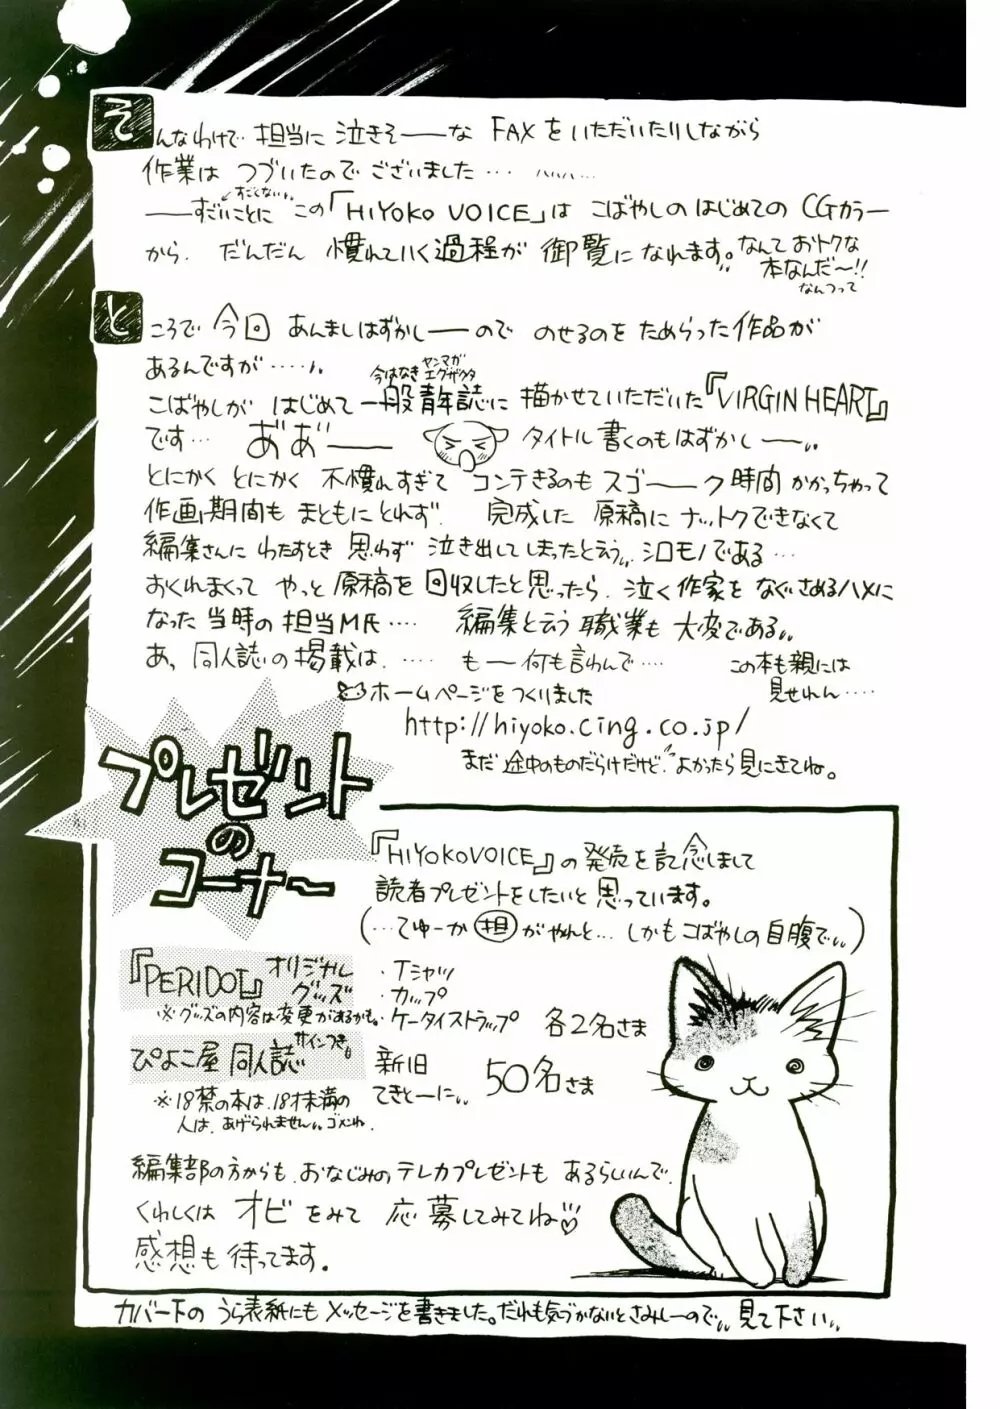 そんなわけで 担当に 泣きそーーな FAX を いただいたりしながら
作業は つづいたので ございました… ……
すごくない
——すごいことに この「HIYOKO VOICE」は こばやしの はじめての CGカラー
から、だんだん 慣れていく過程が 御覧になれます。なんて おトクな
本なんだ〜!!
なんつって
ところで 今回 あんましはずかしーーので のせるのを ためらった 作品が
あるんですが……
今はなき ヤンマガ エグザクタ
こばやしが はじめて 一般青年誌に 描かせていただいた『VIRGIN HEART』
です… あ゛あ゛ーー タイトル書くのもはずかしーー
とにかく とにかく 不慣れすぎて コンテきるのも スゴーーク 時間 かかっちゃって
作画期間も まともに とれず. 完成した 原稿に ナットクできなくて
編集さんに わたすとき 思わず 泣き出してしまったとゆう シロモノである…
おくれまくって やっと 原稿を 回収したと思ったら、泣く作家を なぐさめるハメに
なった 当時の 担当M氏…. 編集とゆう 職業も 大変である
あ、同人誌の掲載は、…… もー何も言わんで…. この本も親には
見せれん….
ホームページを つくりました
http://hiyoko.cing.co.jp/
まだ 途中のものだらけだけど. よかったら 見にきてね。
プレゼント
の
コーナー
『HIYOKO VOICE』の 発売を 記念しまして
読者プレゼントをしたいと 思っています。
(…てゆーか 担 がやれと… しかも こばやしの 自腹で)
『PERIDOT』 オリジナル グッズ
・Tシャツ
・カップ
・ケータイストラップ 各2名さま
※グッズの内容は変更があるかも。
ぴよこ屋 同人誌 サインつき。
新旧
てきとーに 50名さま
※18禁の本は、18才未満の
人は、あげられません ゴメンね.
編集部の方からも、おなじみの テレカプレゼントも あるらしいんで
くわしくは オビ をみて 応募してみてね♡
感想も 待ってます。
カバー下の うら表紙にも メッセージを書きました。だれも気づかないとさみしーので 見て下さい